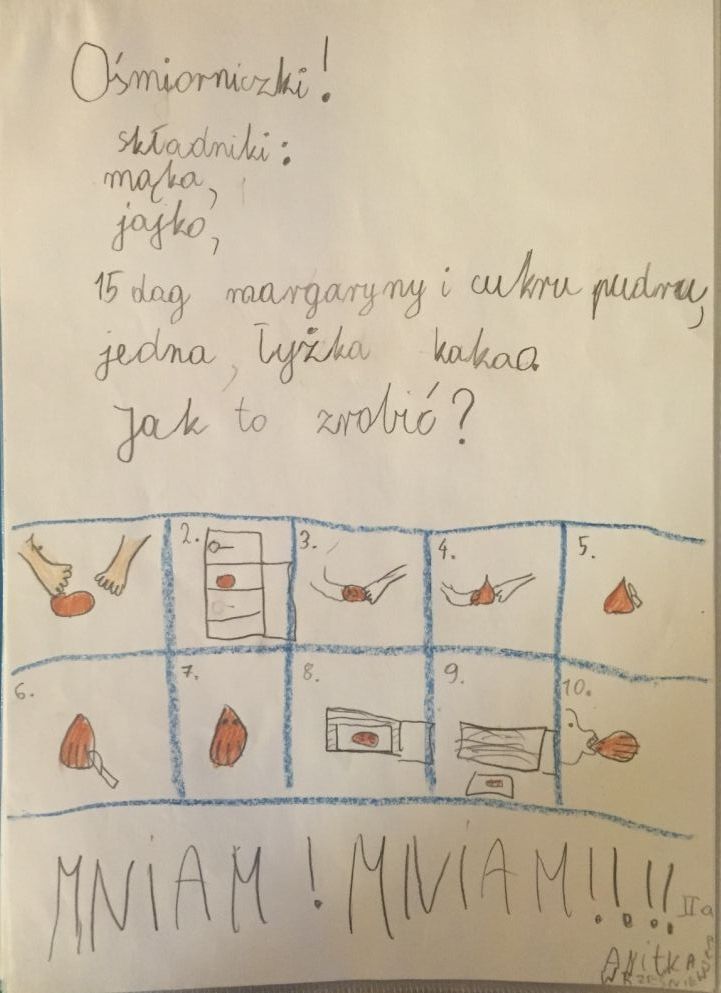 Ośmiorniczki!
składniki:
mąka,
jajko,
15 dag margaryny i cukru pudru,
jedna, łyżka kakao.
Jak to zrobić?
2. 3. 4. 5.
6. 7. 8. 9. 10.
MNiAM! MNiAM!!!!
IIa
Anitka